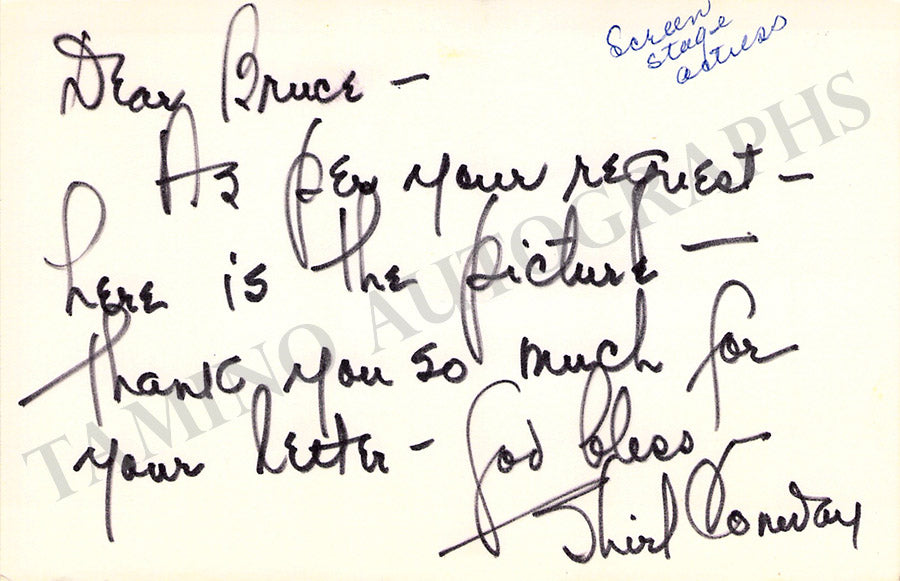 Screen
Stage
actress
Dear Bruce –
As per your request –
here is the picture –
thank you so much for
your letter – God bless –
Shirl Conway
TAMINO AUTOGRAPHS